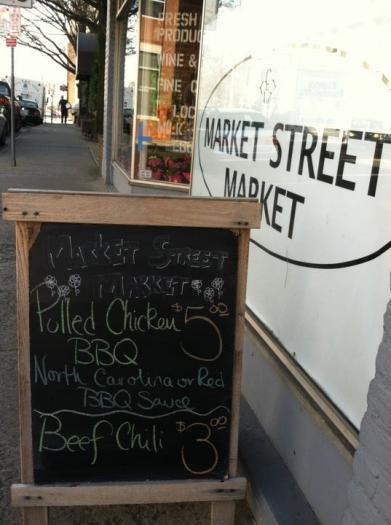 FRESH
PRODUC
WINE &
FINE C
LOC
MILK
EGG
MARKET STREET
MARKET
MARKET STREET
MARKET
Pulled Chicken $5.00
BBQ
North Carolina or Red
BBQ Sauce
Beef Chili $3.00